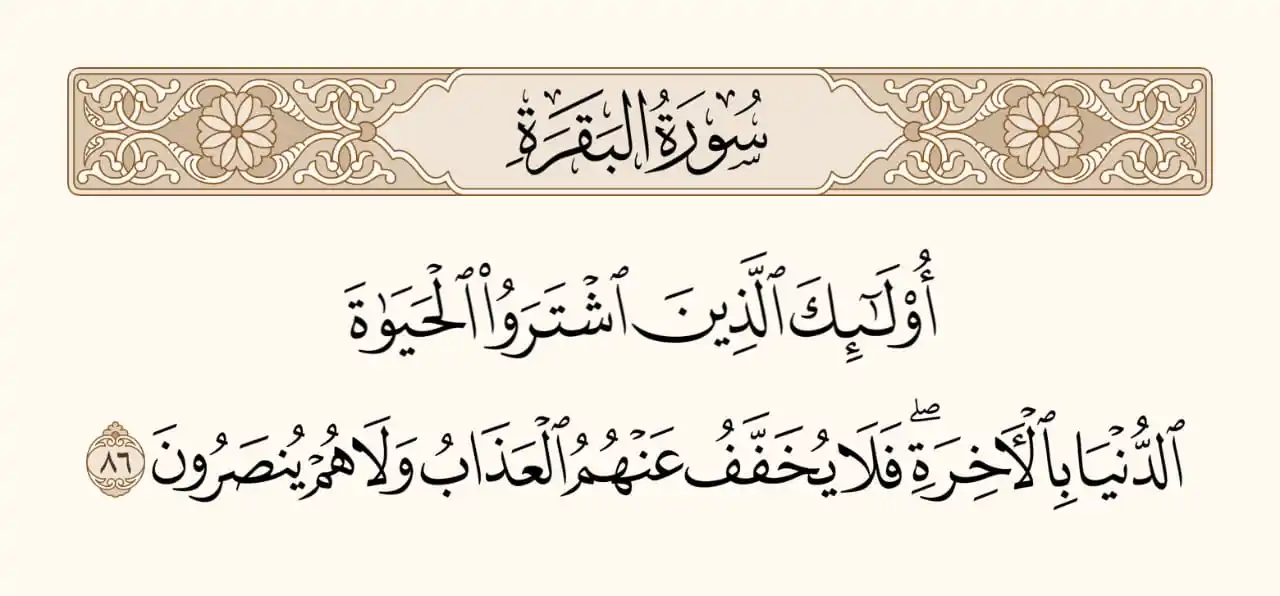 سُورَةُ البَقَرَةِ
أُوْلَـٰٓئِكَ ٱلَّذِينَ ٱشۡتَرَوُاْ ٱلۡحَيَوٰةَ
ٱلدُّنۡيَا بِٱلۡأٓخِرَةِۖ فَلَا يُخَفَّفُ عَنۡهُمُ ٱلۡعَذَابُ وَلَا هُمۡ يُنصَرُونَ ٨٦